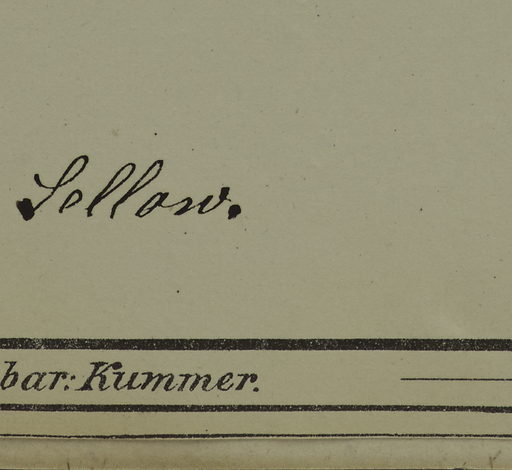 Sellow.
bar: Kummer.